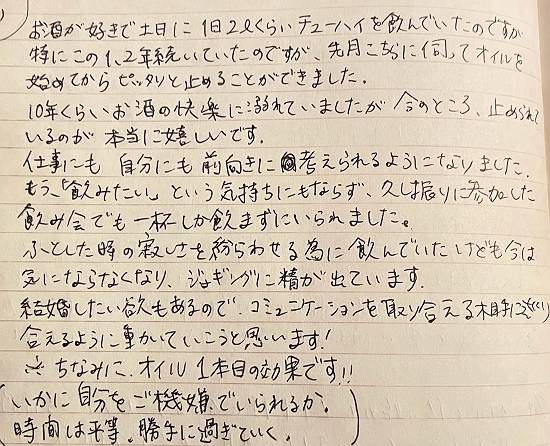 お酒が好きで土日に1日2Lくらいチューハイを飲んでいたのですが
特にこの1,2年続いていたのですが、先月こちらに伺ってオイルを
始めてからピッタリと止めることができました.
10年くらいお酒の快楽に溺れていましたが今のところ、止められて
いるのが本当に嬉しいです。
仕事にも自分にも前向きに考えられるようになりました.
もう、「飲みたい」という気持ちにもならず、久し振りに参加した
飲み会でも一杯しか飲まずにいられました。
ふとした時の寂しさを紛らわせる為に飲んでいたけども今は
気にならなくなり、ジョギングに精が出ています.
結婚したい欲もあるので、コミュニケーションを取り合える相手に
合えるように動かていこうと思います!
ちなみに、オイル1本目の効果です!!
(いかに自分をご機嫌でいられるか.
時間は平等。勝手に過ぎていく.)